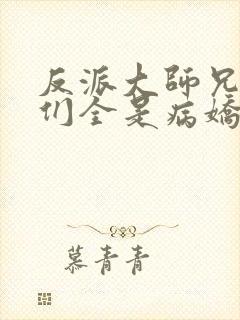 反派大師兄
们全是病嬌
慕青青